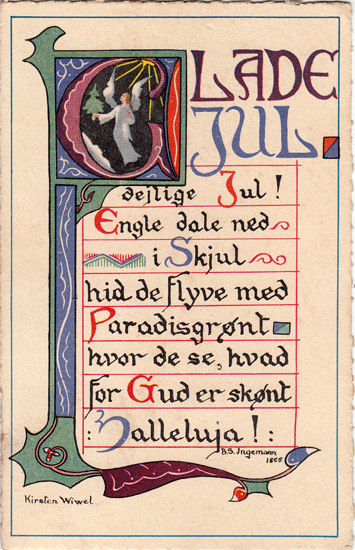 GLADE
JUL
dejlige Jul!
Engle dale ned
i Skjul
hid de flyve med
Paradisgrønt
hvor de se, hvad
for Gud er skønt
: Halleluja! :
B.S. Ingemann
1855
Kirsten Wiwel